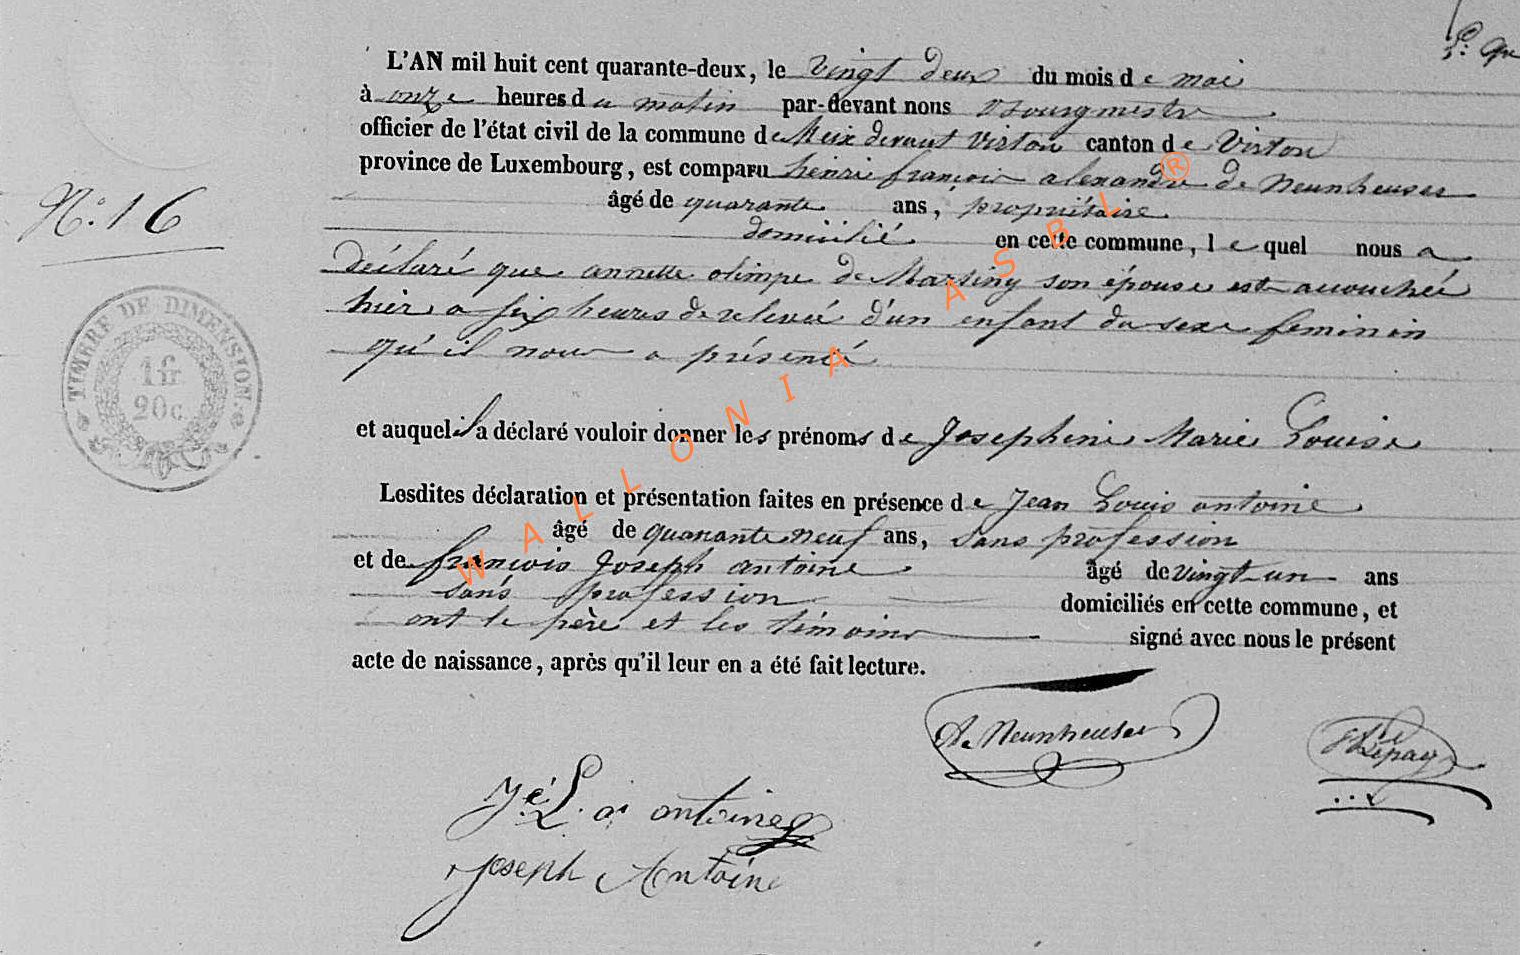 L'AN mil huit cent quarante-deux, le vingt deux du mois de mai
à onze heures du matin par-devant nous Bourgmestre
officier de l'état civil de la commune de Meix devant Virton canton de Virton
province de Luxembourg, est comparu henri françois alexandre de Neunheuser
N.° 16
âgé de quarante ans, propriétaire
domicilié en cette commune, lequel nous a
déclaré que annette olimpe de Marsiny son épouse est accouchée
hier a six heures de relevée d'un enfant du sexe feminin
qu'il nous a présenté
TIMBRE DE DIMENSION.
1 fr
20 c.
et auquel il a déclaré vouloir donner les prénoms de Josephine Marie Louise
Lesdites déclaration et présentation faites en présence de Jean Louis antoine
âgé de quarante neuf ans, sans profession
et de françois Joseph antoine âgé de vingt un ans
sans profession domiciliés en cette commune, et
ont le père et les témoins signé avec nous le présent
acte de naissance, après qu'il leur en a été fait lecture.
A. Neunheuser
Lepage
antoine
Joseph Antoine
WALLONIA ASBL ®